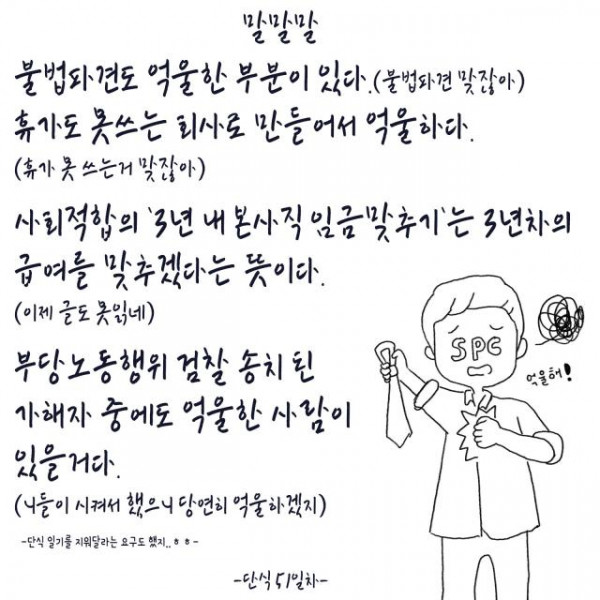 말말말
불법파견도 억울한 부분이 있다.(불법파견 맞잖아)
휴가도 못쓰는 회사로 만들어서 억울하다.
(휴가 못 쓰는거 맞잖아)
사회적합의 '3년 내 본사직 임금맞추기'는 3년차의
급여를 맞추겠다는 뜻이다.
(이제 글도 못읽네)
SPC
억울해!
부당노동행위 검찰 송치 된
가해자 중에도 억울한 사람이
있을거다.
(니들이 시켜서 했으니 당연히 억울하겠지)
-단식 일기를 지워달라는 요구도 했지..ㅎㅎ-
-단식 51일차-